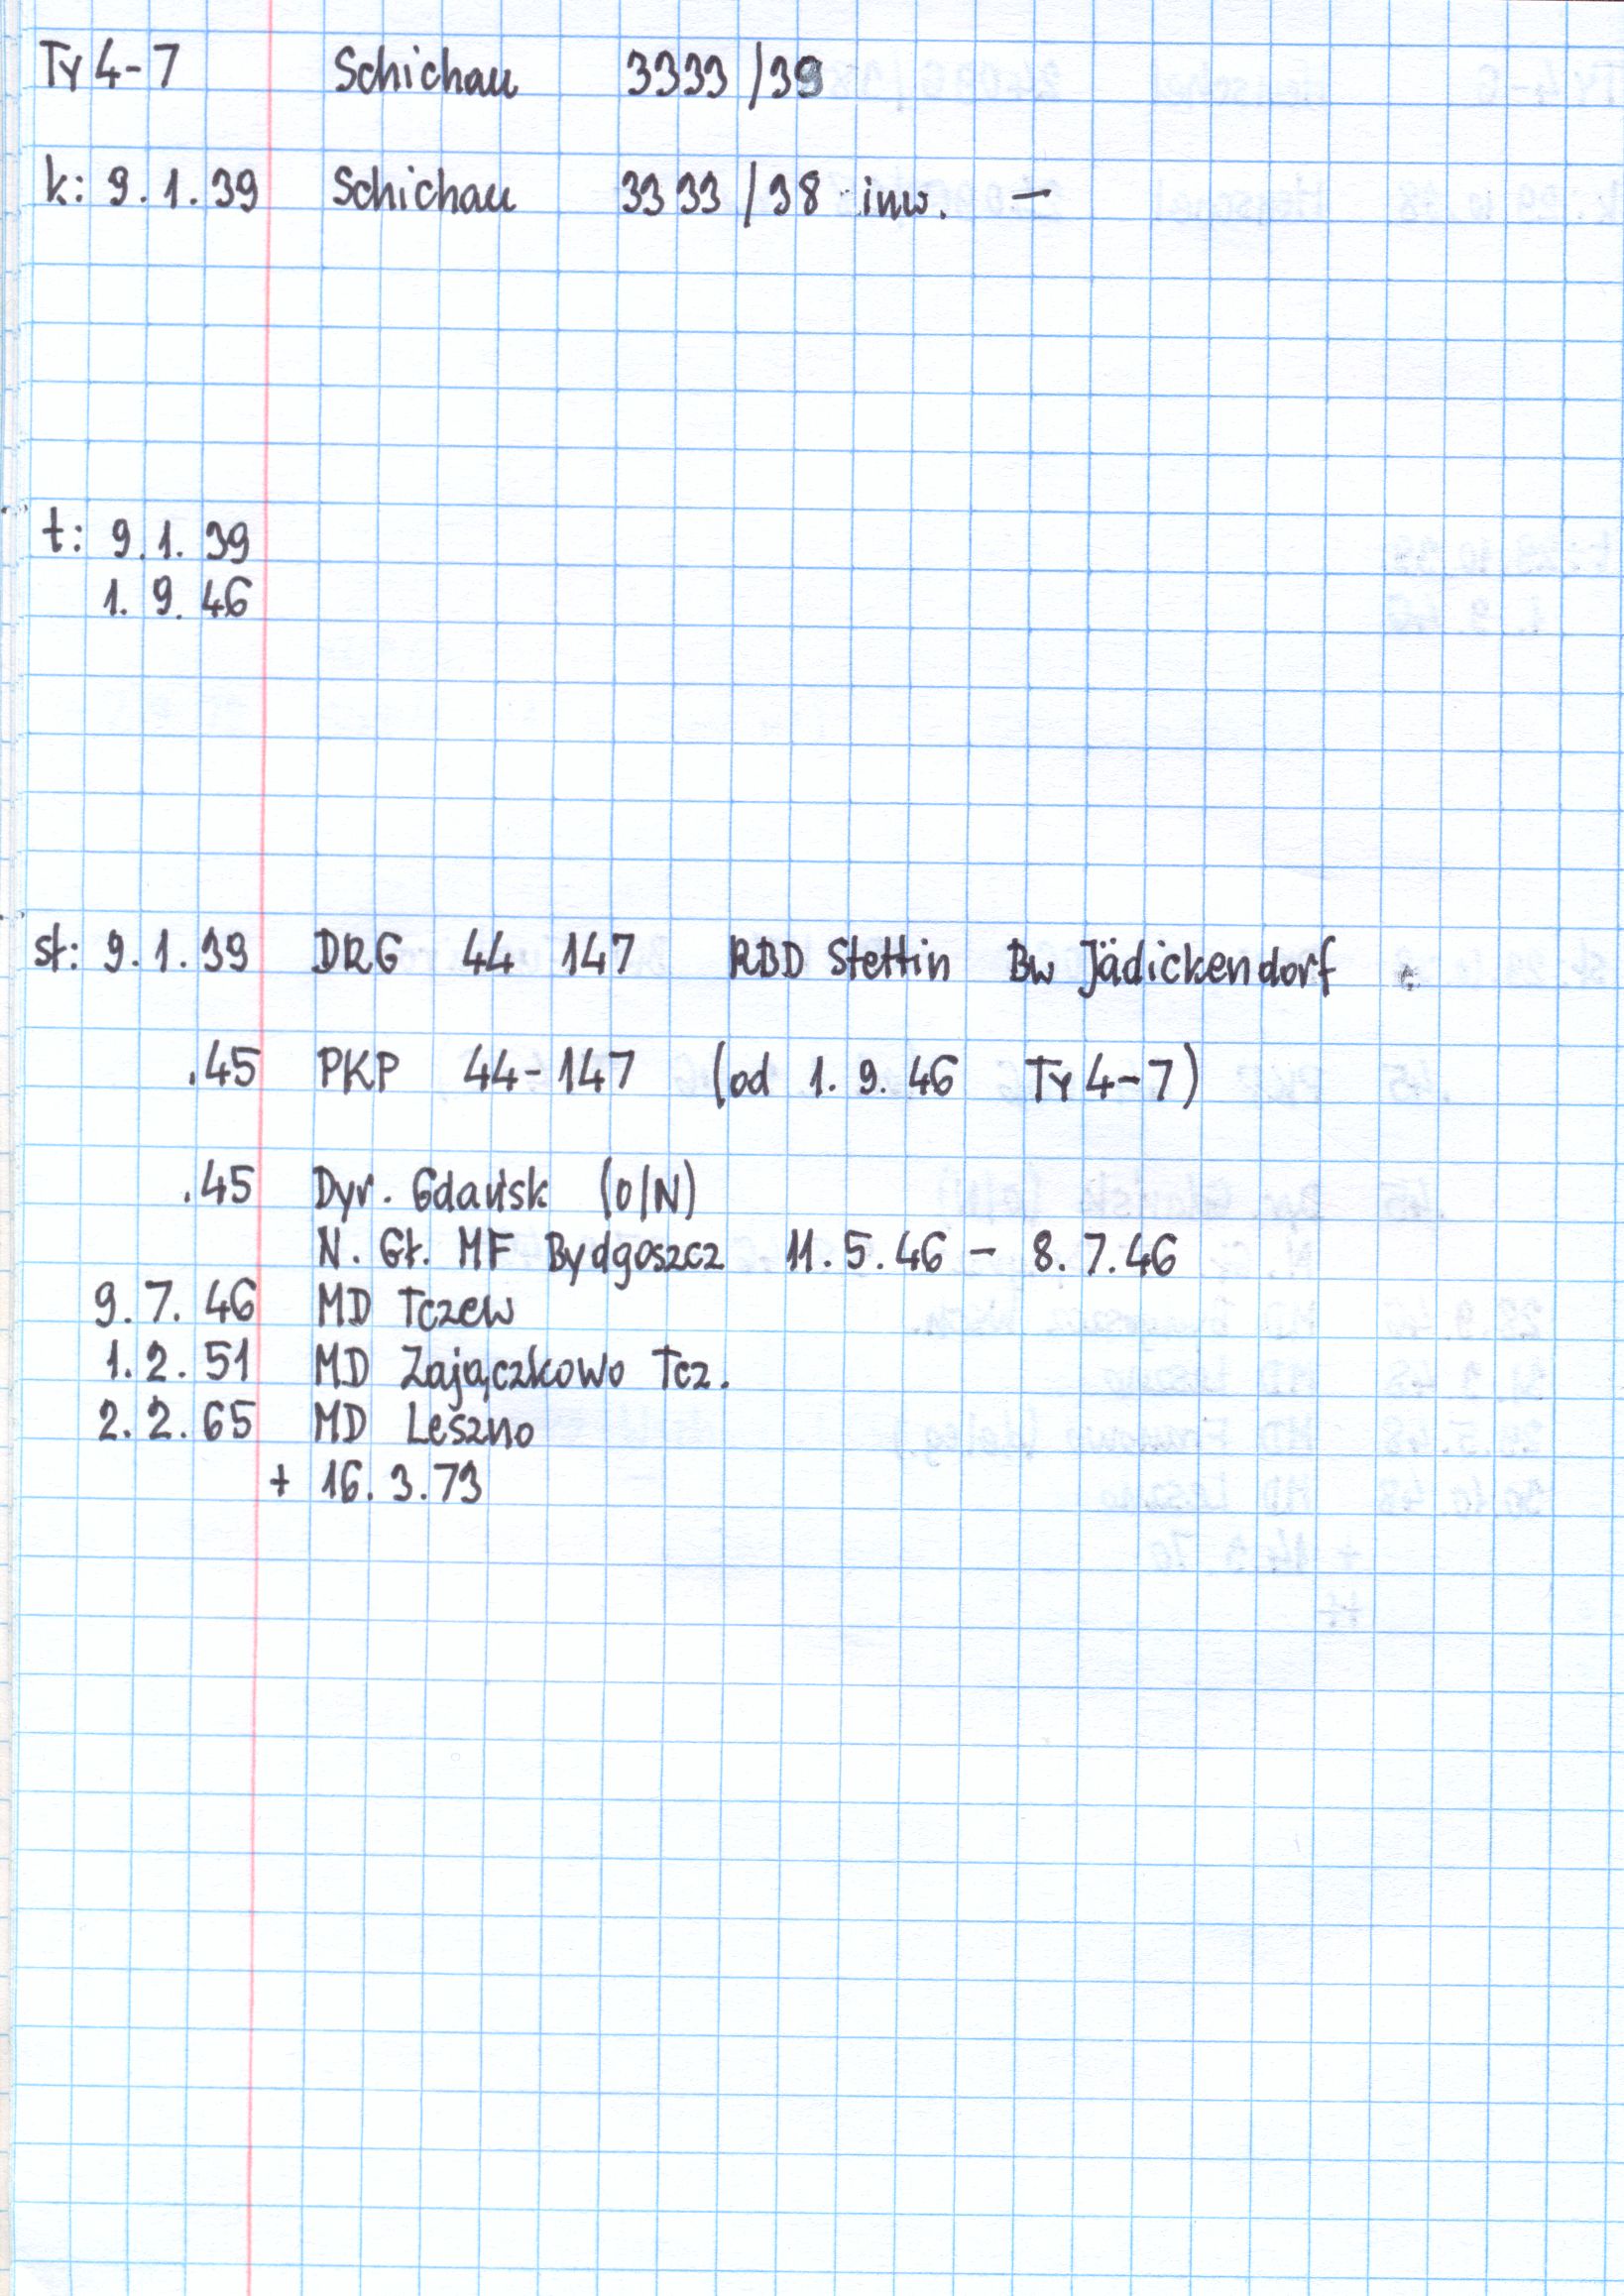 Ty4-7 Schichau 3333/39
k: 9.1.39 Schichau 3333/38 inw. –
t: 9.1.39
1.9.46
st: 9.1.39 DRG 44 147 RBD Stettin Bw Jädickendorf
.45 PKP 44-147 (od 1.9.46 Ty4-7)
.45 Dyr. Gdańsk (O/N)
N. Gł. MF Bydgoszcz 11.5.46 – 8.7.46
9.7.46 MD Tczew
1.2.51 MD Zajączkowo Tcz.
2.2.65 MD Leszno
+ 16.3.73